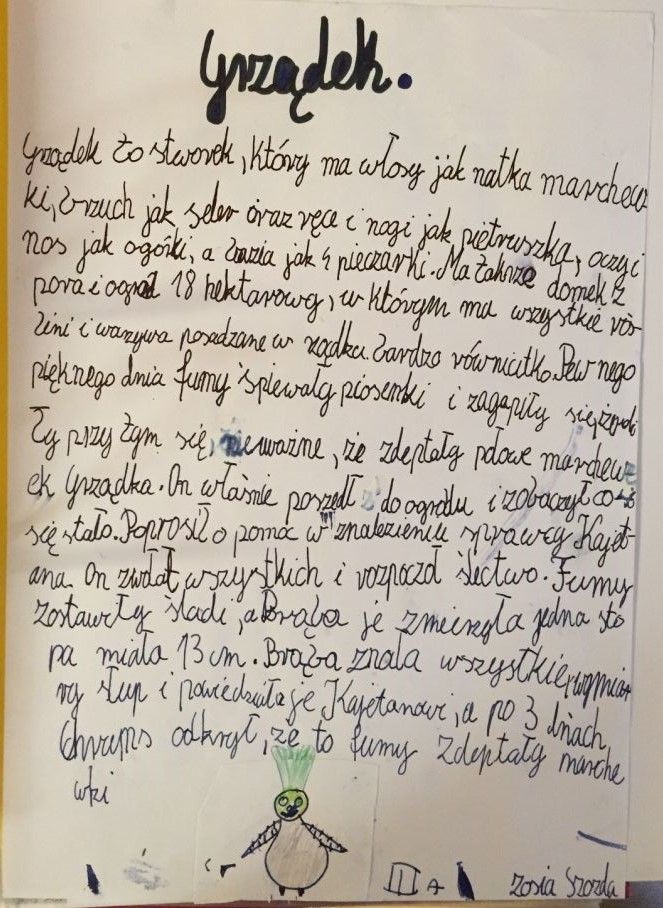 Grządek.
Grządek to stworek, który ma włosy jak natka marchew
ki, brzuch jak seler oraz ręce i nogi jak piętruszka, oczy i
nos jak ogórki, a buzia jak 4 pieczarki. Ma także domek z
pora i ogród 18 hektarowy, w którym ma wszystkie roś-
lini i warzywa posadzane w rządku. Bardzo równiutko. Pewnego
pięknego dnia fumy śpiewały piosenki i zagapiły się
ły przy tym się, nieuważne, że zdeptały połowe marchew-
ek Grządka. On właśnie poszedł do ogrodu i zobaczył co
się stało. Poprosił o pomoc w znalezieniu sprawcy Kajet-
ana. On zwołał wszystkich i rozpoczoł śledztwo. Fumy
zostawiły śladi, a Brąba je zmierzyła jedna sto
pa miała 13 cm. Brąba znała wszystkie wymia-
ry stup i powiedziała je Kajetanowi, a po 3 dniach
Chrums odkrył, że to fumy zdeptały marche
wki
III a
Zosia Szozda